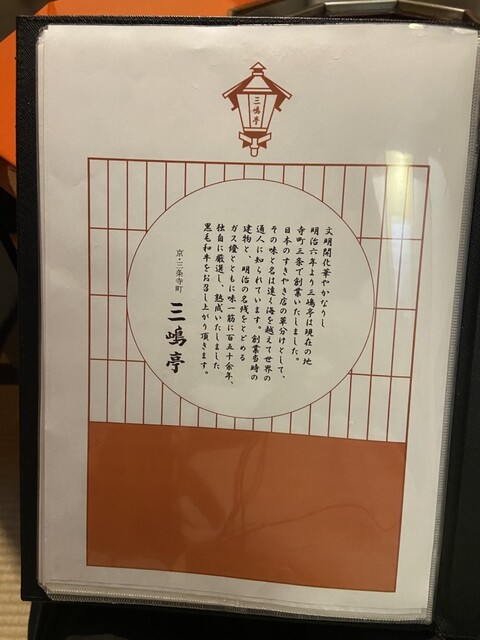 三嶋亭
文明開化華やかなりし
明治六年より三嶋亭は現在の地
寺町三条で創業いたしました。
日本のすきやき店の草分けとして、
その味と名は遠く海を越えて世界の
通人に知られています。創業当時の
建物と、明治の名残をとどめる
ガス燈とともに味一筋に百五十余年、
独自に厳選し、熟成いたしました
黒毛和牛をお召し上がり頂きます。
京・三条寺町
三嶋亭